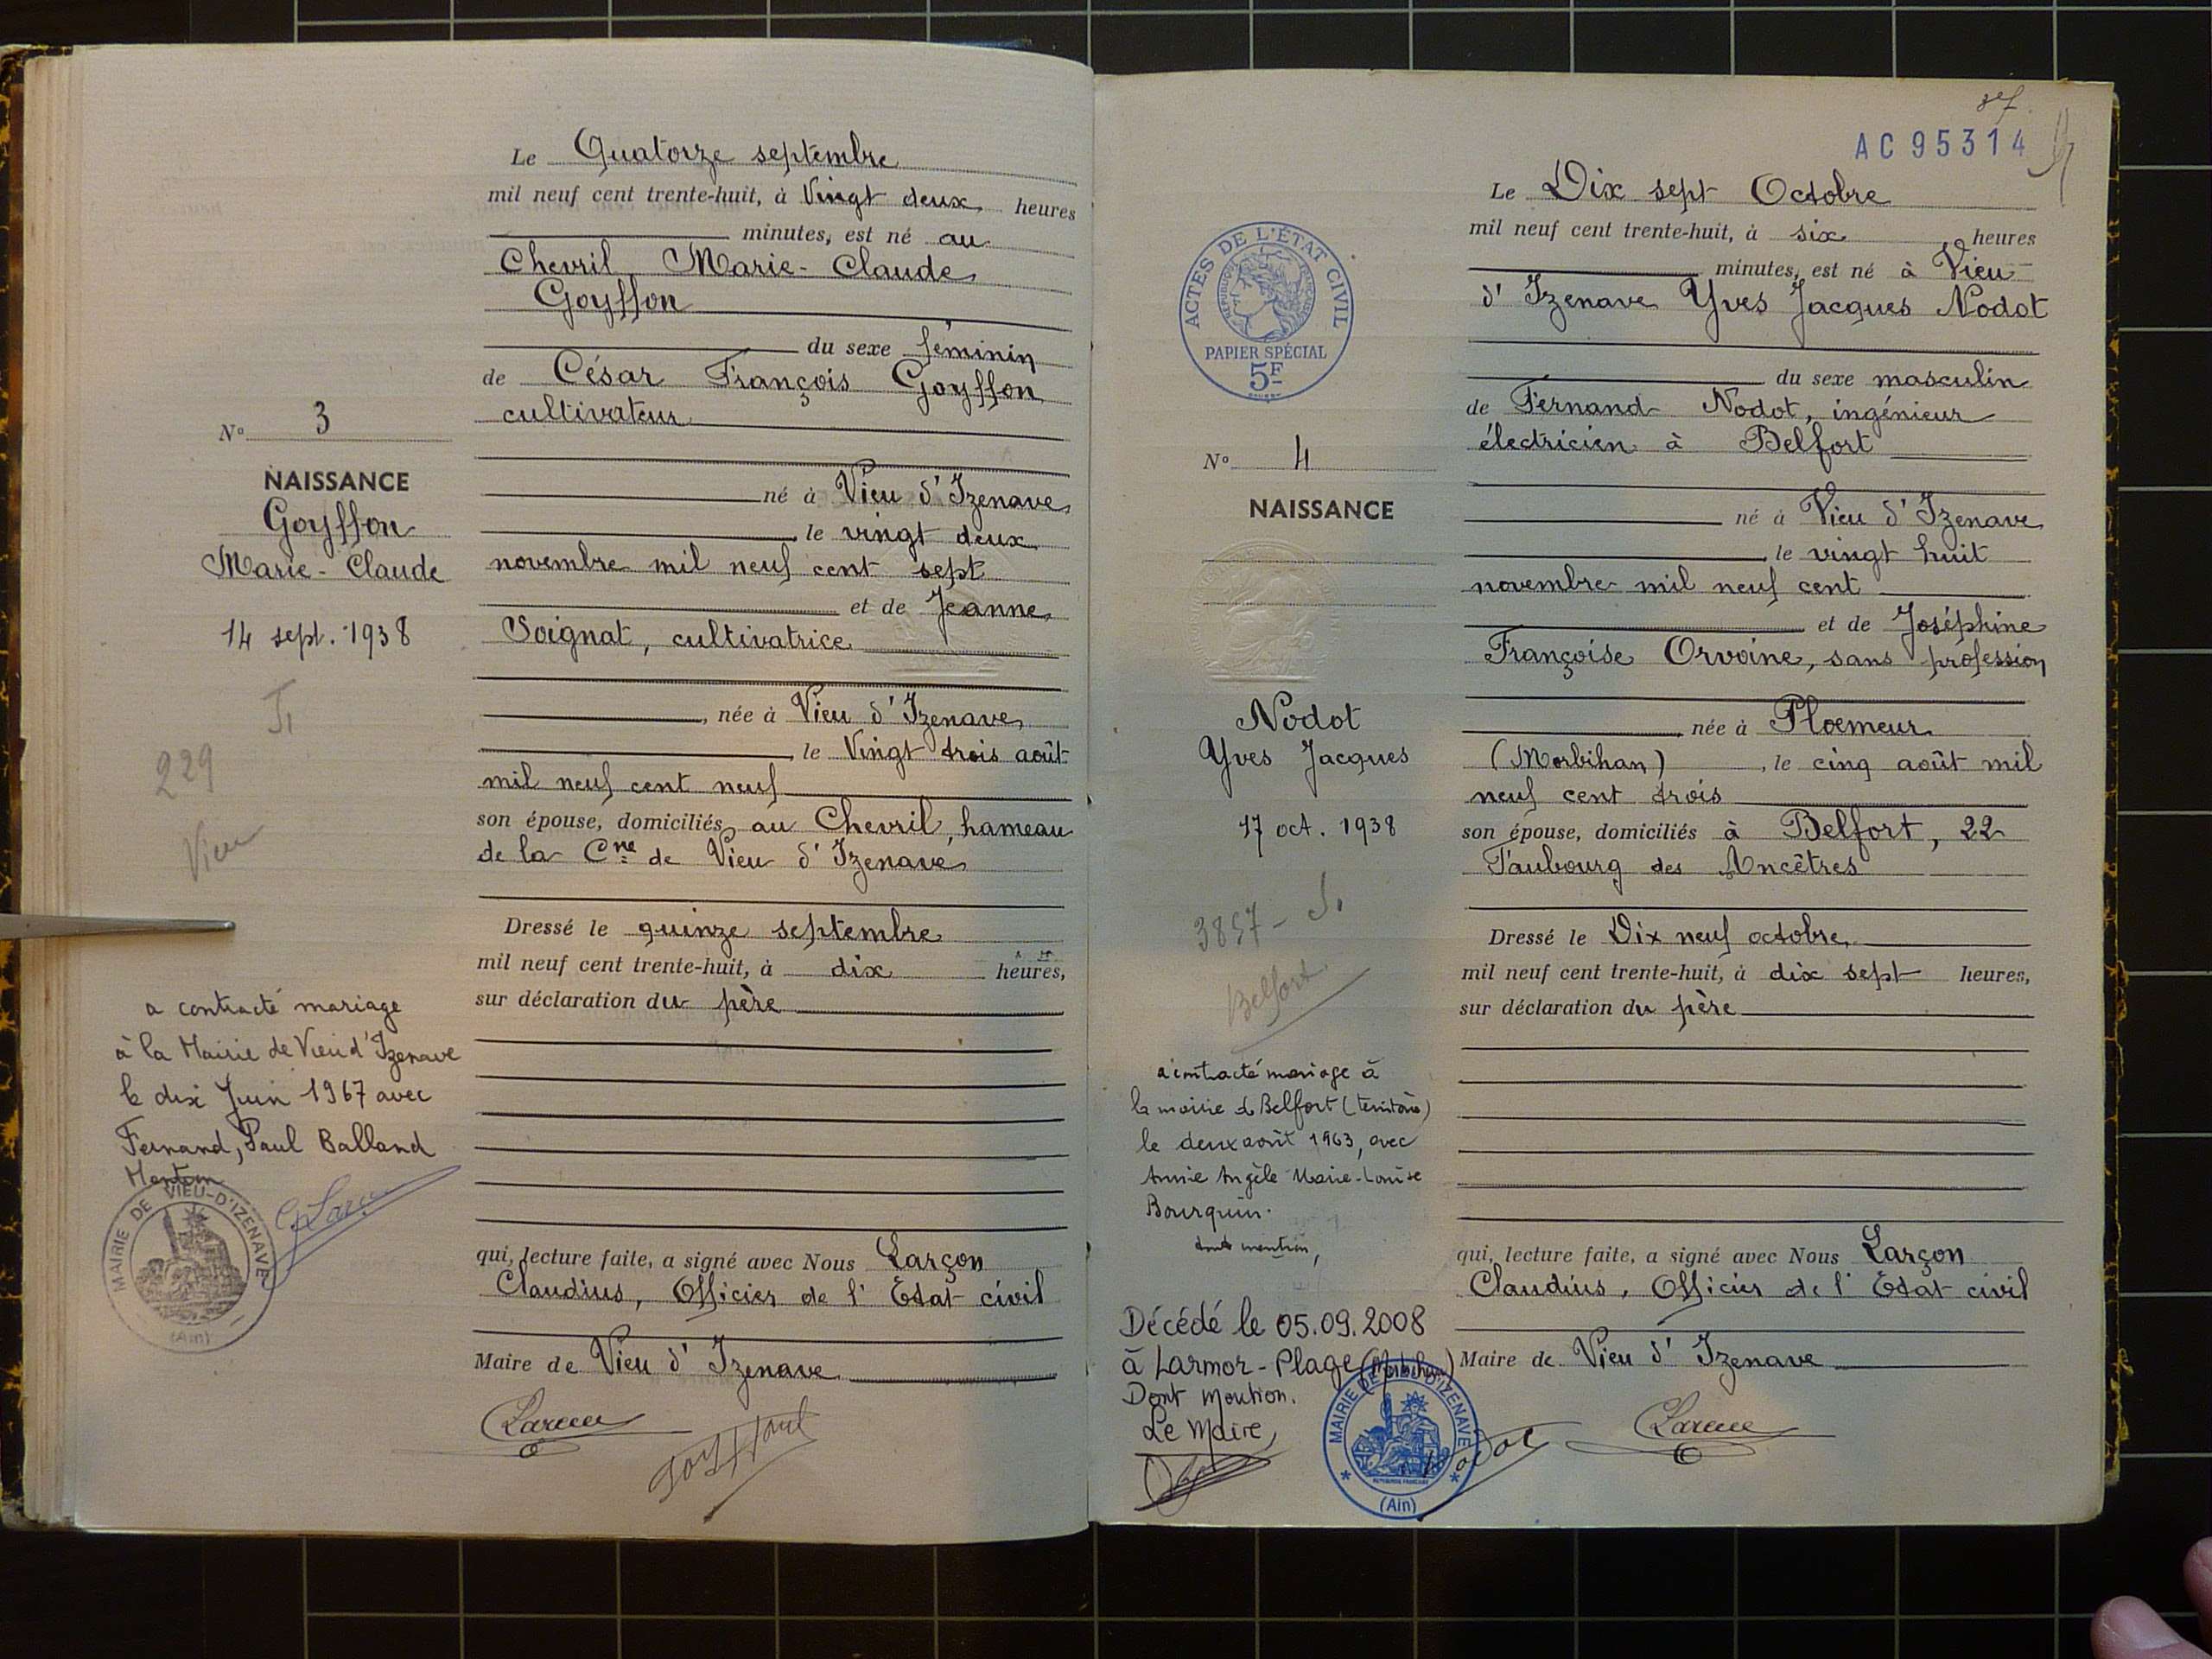 Le Quatorze septembre
mil neuf cent trente-huit, à Vingt deux heures
minutes, est né au
Chevril, Marie-Claude
Goyffon
du sexe féminin
de César François Goyffon
cultivateur
N° 3
né à Vieu d'Izenave
NAISSANCE
le vingt deux
Goyffon
novembre mil neuf cent sept
Marie-Claude
et de Jeanne
14 sept. 1938
Soignat, cultivatrice
née à Vieu d'Izenave
229
, le Vingt trois août
mil neuf cent neuf
Vieu
son épouse, domiciliés au Chevril, hameau
de la Cne de Vieu d'Izenave
Dressé le quinze septembre
mil neuf cent trente-huit, à dix heures,
sur déclaration du père
a contracté mariage
à la Mairie de Vieu d'Izenave
le dix Juin 1967 avec
Fernand, Paul Balland
Mention
MAIRIE DE VIEU-D'IZENAVE
(Ain)
qui, lecture faite, a signé avec Nous Larçon
Claudius, Officier de l'Etat civil
Maire de Vieu d'Izenave
AC 95314
Le Dix sept Octobre
mil neuf cent trente-huit, à six heures
minutes, est né à Vieu
d'Izenave Yves Jacques Nodot
ACTES DE L'ÉTAT CIVIL
RÉPUBLIQUE FRANÇAISE
PAPIER SPÉCIAL
5F
du sexe masculin
de Fernand Nodot, ingénieur
électricien à Belfort
N° 4
NAISSANCE
né à Vieu d'Izenave
le vingt huit
novembre mil neuf cent
et de Joséphine
Françoise Orvoine, sans profession
Nodot
née à Ploemeur
Yves Jacques
(Morbihan), le cinq août mil
neuf cent trois
17 oct. 1938
son épouse, domiciliés à Belfort, 22
Faubourg des Ancêtres
3857
Belfort
Dressé le Dix neuf octobre
mil neuf cent trente-huit, à dix sept heures,
sur déclaration du père
a contracté mariage à
la mairie de Belfort (territoire)
le deux août 1963, avec
Annie Angèle Marie-Louise
Bourquin.
dont mention,
qui, lecture faite, a signé avec Nous Larçon
Claudius, Officier de l'Etat civil
Décédé le 05.09.2008
à Larmor-Plage (Morbihan)
Dont mention.
Le Maire,
Maire de Vieu d'Izenave
MAIRIE DE VIEU-D'IZENAVE
REPUBLIQUE FRANÇAISE
(Ain)
Nodot